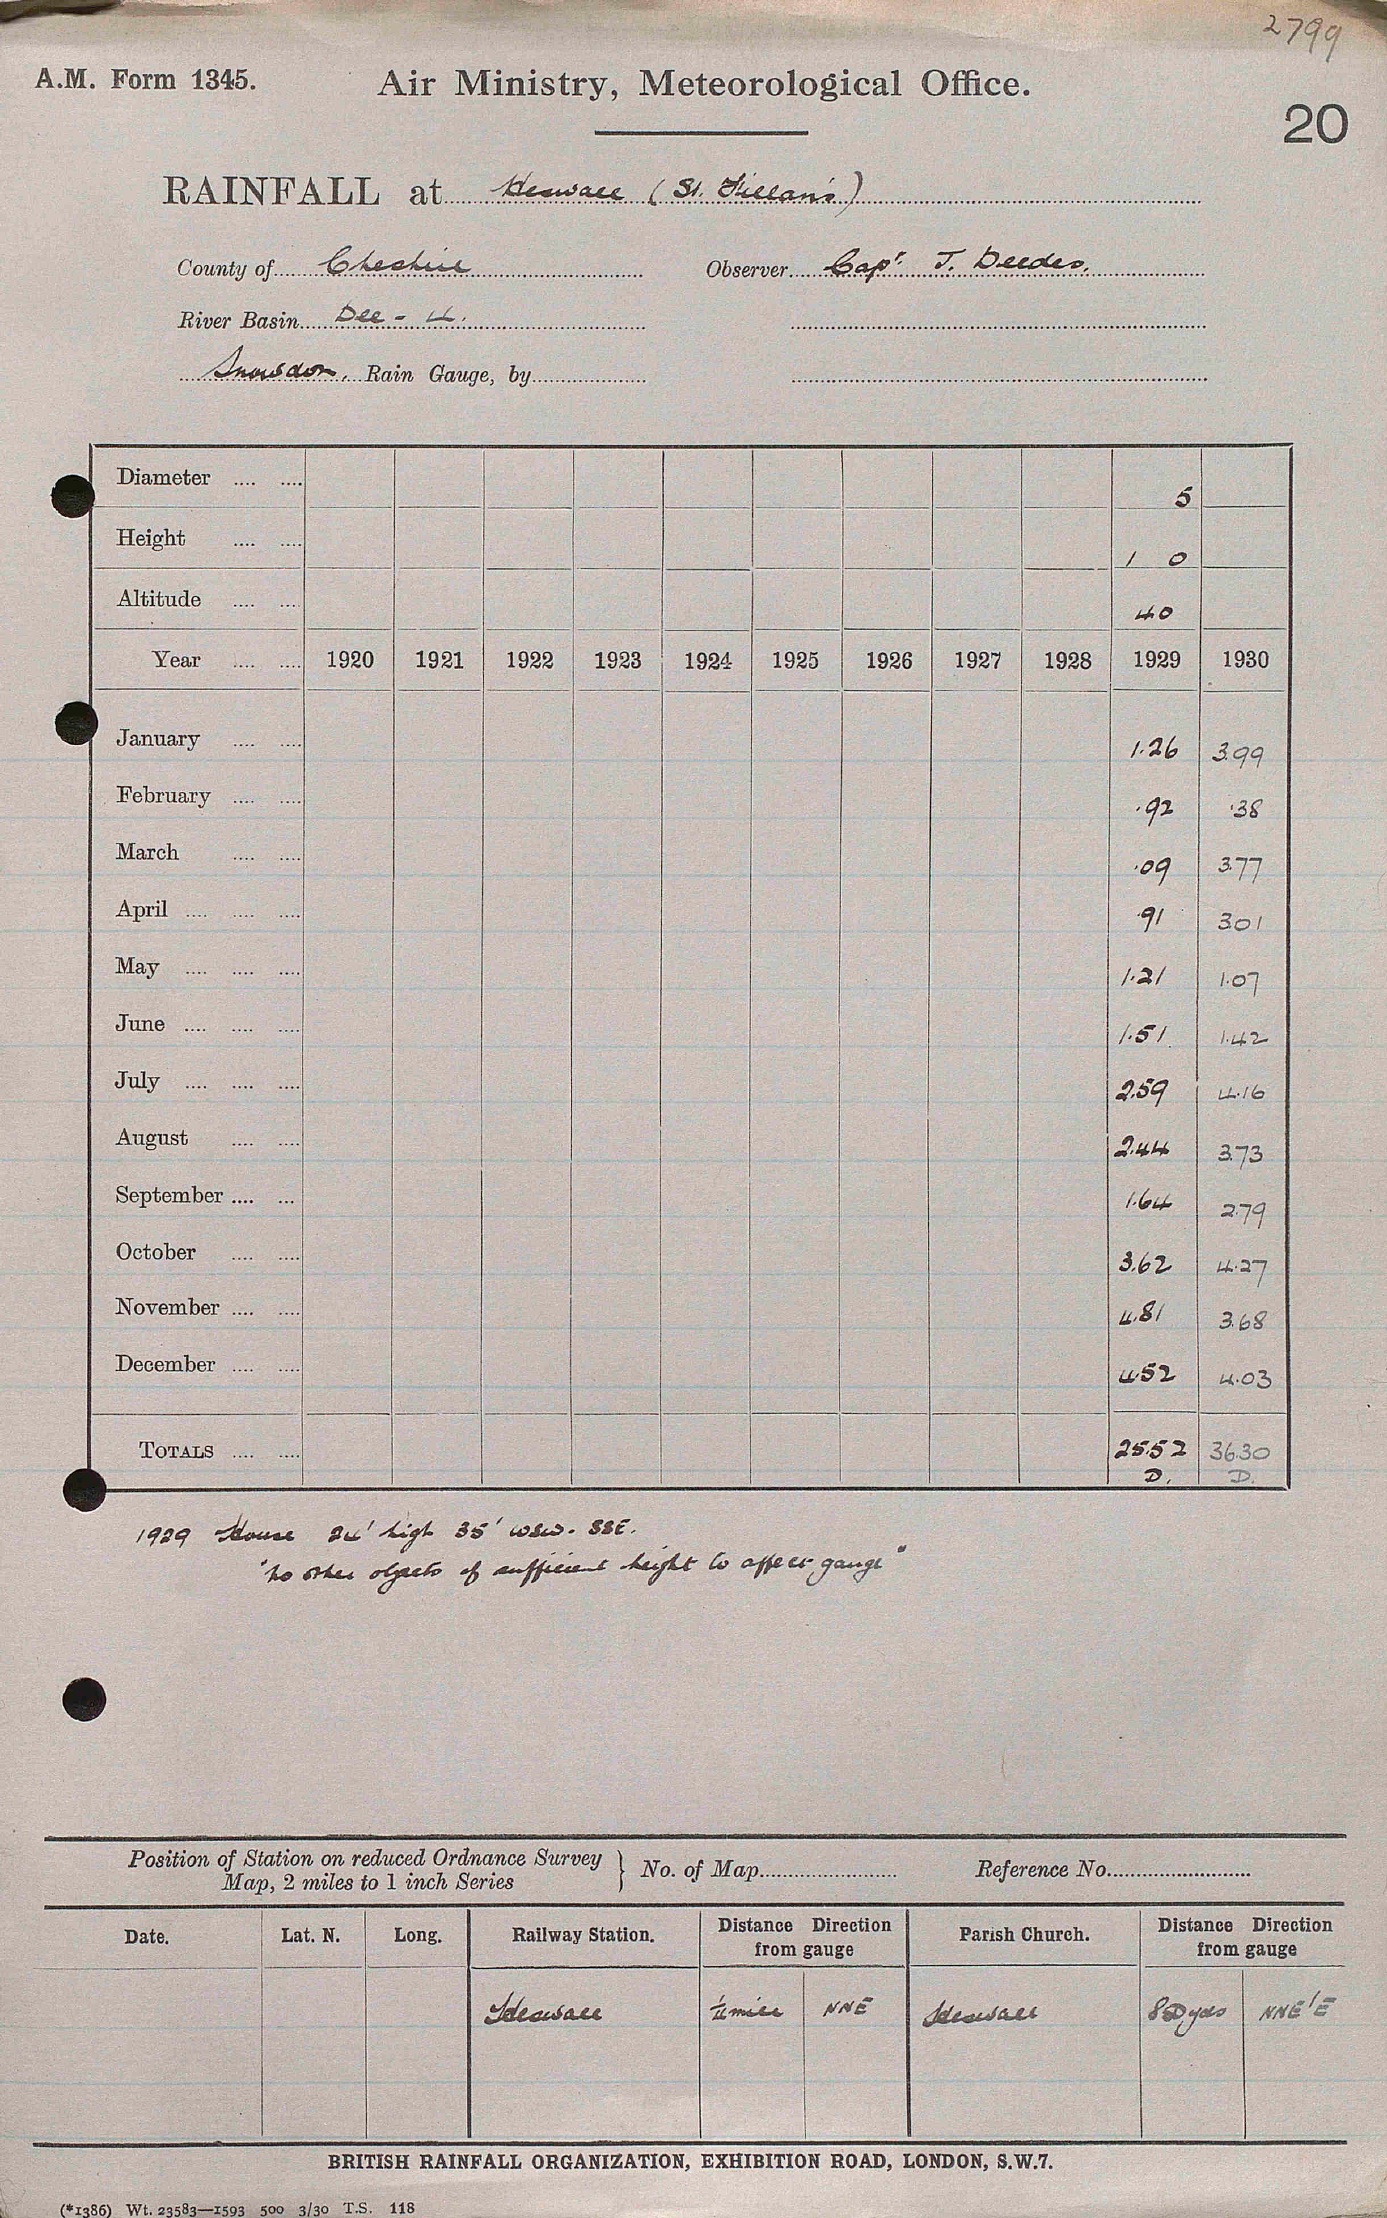 2799
A.M. Form 1345.
Air Ministry, Meteorological Office.
20
RAINFALL at Heswall (St. Killan's)
County of Cheshire Observer Capt. J. Deedes.
River Basin Dee - 4.
Snowdon. Rain Gauge, by
Diameter .... .... 5
Height .... .... 1 0
Altitude .... .... 40
Year .... .... 1920 1921 1922 1923 1924 1925 1926 1927 1928 1929 1930
January .... .... 1.26 3.99
February .... .... .92 .38
March .... .... .09 3.77
April .... .... .... .91 3.01
May .... .... .... 1.21 1.07
June .... .... .... 1.51 1.42
July .... .... .... 2.59 4.16
August .... .... 2.44 3.73
September .... ... 1.64 2.79
October .... .... 3.62 4.27
November .... .... 4.81 3.68
December .... .... 4.52 4.03
TOTALS .... .... 25.52 36.30
D. D.
1929 House 24' high 35' WSW. SSE.
"No other objects of sufficient height to affect gauge"
Position of Station on reduced Ordnance Survey
Map, 2 miles to 1 inch Series } No. of Map Reference No.
Date. Lat. N. Long. Railway Station. Distance Direction from gauge Parish Church. Distance Direction from gauge
Heswall ¼ mile NNE Heswall yds NNE'E
BRITISH RAINFALL ORGANIZATION, EXHIBITION ROAD, LONDON, S.W.7.
(*1386) Wt. 23583—1593 500 3/30 T.S. 118